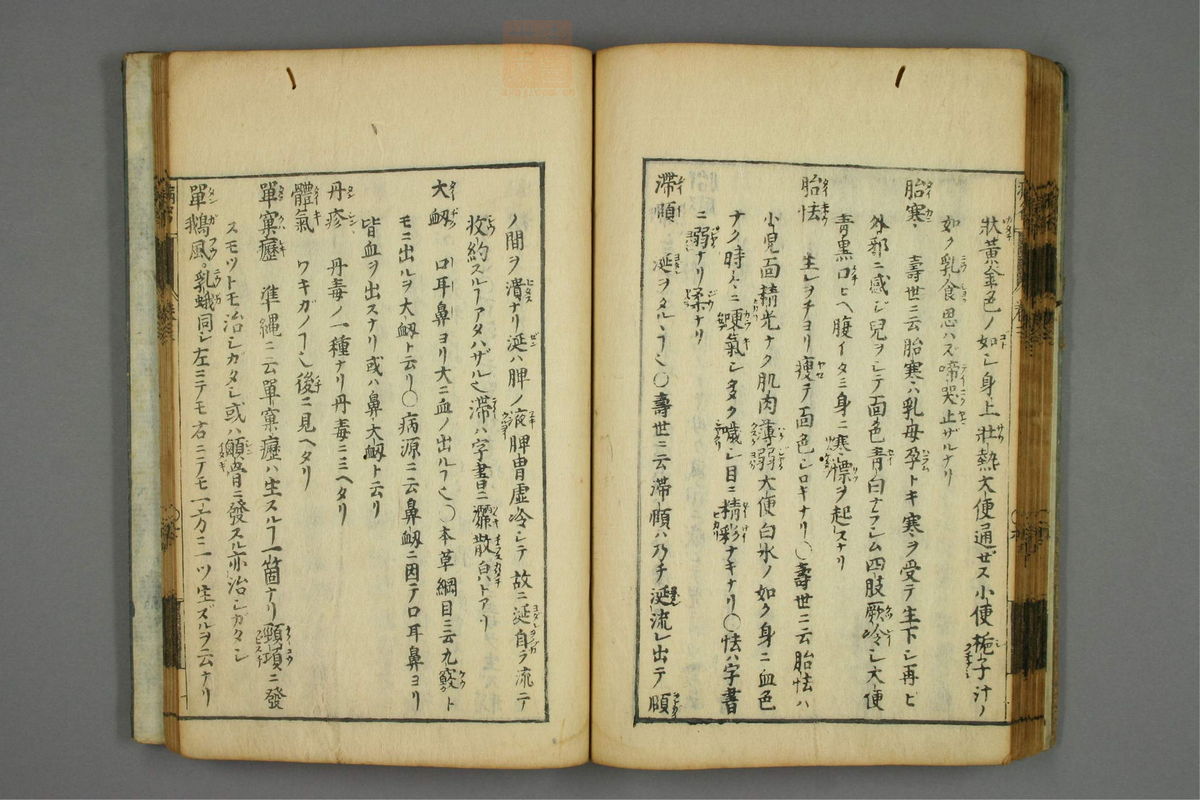 狀黃金色ノ如シ身上壯熱大便通ゼス小便梔子汁ノ
如ク乳食思ハス啼哭止ザルナリ
胎寒 壽世ニ云胎寒ハ乳母孕トキ寒ヲ受テ生下シ再ビ
外邪ニ感ジ兒ヲシテ面色青白ナラシム四肢厥冷シ大便
青黑口ヒヘ腹イタミ身ニ寒慄ヲ起スナリ
胎怯 生レヲチヨリ瘦テ面色シロキナリ〇壽世ニ云胎怯ハ
小兒面精光ナク肌肉薄弱大便白水ノ如ク身ニ血色
ナク時々ニ哽氣シ多ク噦シ目ニ精彩ナキナリ〇怯ハ字書
ニ弱ナリ柔ナリ
滯頤 涎ヲタルヽヿ也〇壽世ニ云滯頤ハ乃チ涎流レ出テ頤
ノ間ヲ漬ナリ涎ハ脾ノ液脾胃虛冷シテ故ニ涎自ラ流テ
收約スルヿアタハザル也滯ハ字書ニ漏散皃トアリ
大衂 口耳鼻ヨリ大ニ血ノ出ルヿ也〇本草綱目ニ云九竅ト
モニ出ルヲ大衂ト云リ〇病源ニ云鼻衂ニ因テ口耳鼻ヨリ
皆血ヲ出スナリ或ハ鼻大衂ト云リ
丹疹 丹毒ノ一種ナリ丹毒ニミヘタリ
體氣 ワキガノヿ也後ニ見ヘタリ
單窠癧 準縄ニ云單窠癧ハ生スルヿ一箇ナリ頸項ニ發
スモツトモ治シガタシ或ハ顖會ニ發スル亦治シガタシ
單鵝風 乳蛾同シ左ニテモ右ニテモ一方ニ一ツ生ズルヲ云ナリ